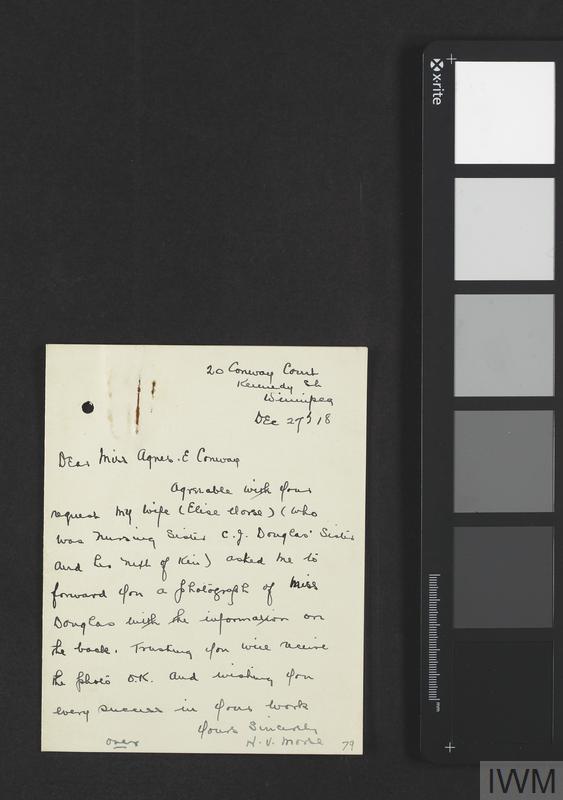 20 Conway Court
Kennedy St
Winnipeg
Dec 27th 18
Dear Miss Agnes. E Conway
Agreeable with your
request my wife (Elise Morse) (who
was Nursing Sister C. J. Douglas' Sister
and her next of Kin) asked me to
forward you a photograph of Miss
Douglas with the information on
the back. Trusting you will receive
the photo O.K. and wishing you
every success in your work
Yours Sincerely
H. V. Morse
over
79
x-rite
mm
IWM